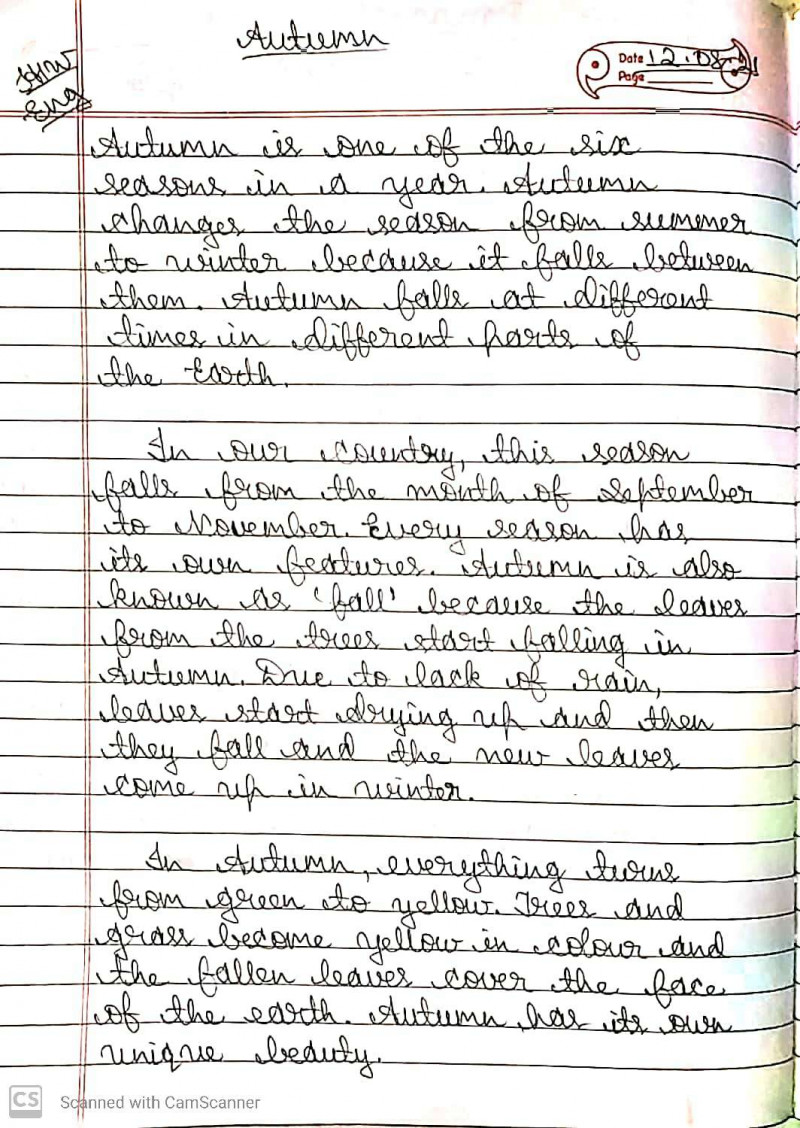 Autumn
H/W
Eng
Date 12.08.21
Page
Autumn is one of the six
seasons in a year. Autumn
changes the season from summer
to winter because it falls between
them. Autumn falls at different
times in different parts of
the Earth.
In our country, this season
falls from the month of September
to November. Every season has
its own features. Autumn is also
known as 'fall' because the leaves
from the trees start falling in
Autumn. Due to lack of rain,
leaves start drying up and then
they fall and the new leaves
come up in winter.
In Autumn, everything turns
from green to yellow. Trees and
grass become yellow in colour and
the fallen leaves cover the face
of the earth. Autumn has its own
unique beauty.
CS Scanned with CamScanner